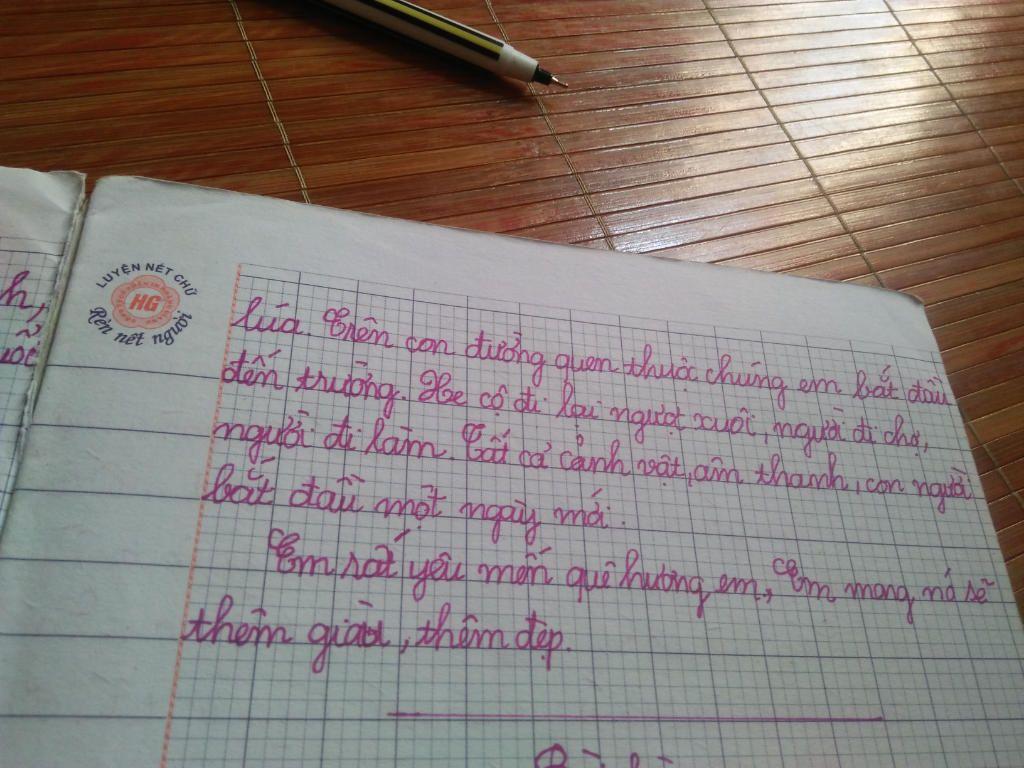 LUYỆN NÉT CHỮ
HG
Rèn nét người
lúa. Trên con đường quen thuộc chúng em bắt đầu
đến trường. Xe cộ đi lại ngượt xuôi, người đi chợ,
người đi làm. Tất cả cảnh vật, âm thanh, con người
bắt đầu một ngày mới.
Em rất yêu mến quê hương em, Em mong nó sẽ
thêm giàu, thêm đẹp.